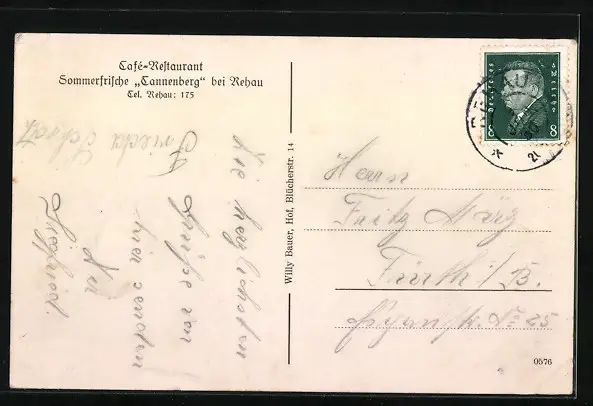 Café-Restaurant
Sommerfrische „Tannenberg“ bei Rehau
Tel. Rehau: 175
Die herzlichsten
Grüße von
hier senden
Willy Bauer, Hof, Blücherstr. 14
DEUTSCHES
REICH
8
8
REHAU
Herrn
Fritz
Fürth i/B.
No 25
0576